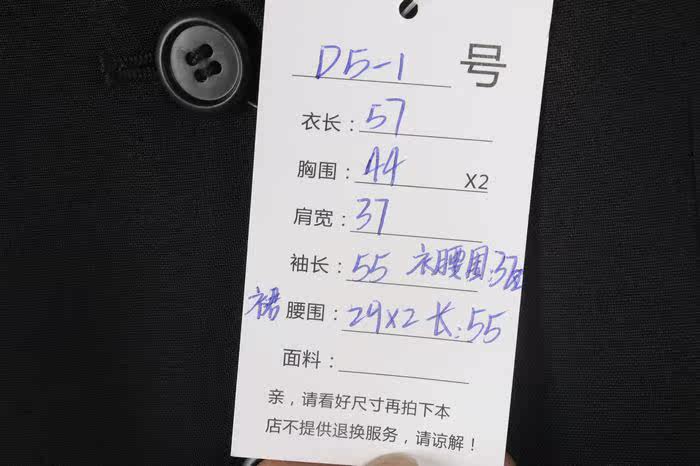 D5-1 号
衣长：57
胸围：44 X2
肩宽：37
袖长：55 衣腰围:37
裙 腰围：29x2 长:55
面料：
亲，请看好尺寸再拍下本
店不提供退换服务，请谅解！